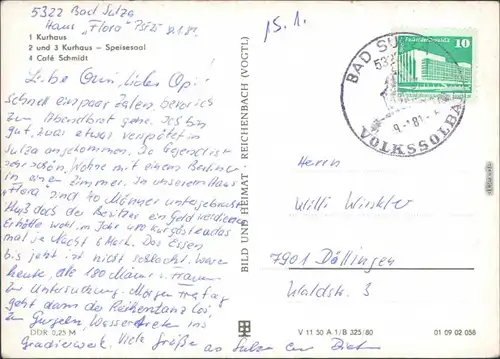 5322 Bad Sulza
Haus „Flora" PSF 25 8.1.81
1 Kurhaus
2 und 3 Kurhaus - Speisesaal
4 Café Schmidt
15.1.
Liebe Omi, lieber Opi!
Schnell ein paar Zeilen, bevor ich
zum Abendbrot gehe. Ich bin
gut, zwar etwas verspätet in
Sulza angekommen. Die Gegend ist
sehr schön. Wohne mit einem Berliner
in einem Zimmer. In unserem Haus
"Flora" sind 40 Männer untergebracht.
Muß doch der Besitzer ein Geld verdienen.
Erhätte wohl im Jahr und Kurgast
mal je Nacht 5 Mark. Das Essen
bis jetzt ist nicht schlecht. Waren
heute, alle 180 Männer u. Frauen
zur Untersuchung. Morgen Freitag
geht dann die Reihentanz los,
zu Gurgeln, Wassertreten im
Gradierwerk. Viele Grüße aus Sulza
DDR 0,25 M
BILD UND HEIMAT · REICHENBACH (VOGTL)
10
BAD SU
5322
9.-1.81
VOLKSSOLBAD
Herrn
Willi Winkler
7901 Döllingen
Waldstr. 3
V 11 50 A 1/B 325/80
01 09 02 058